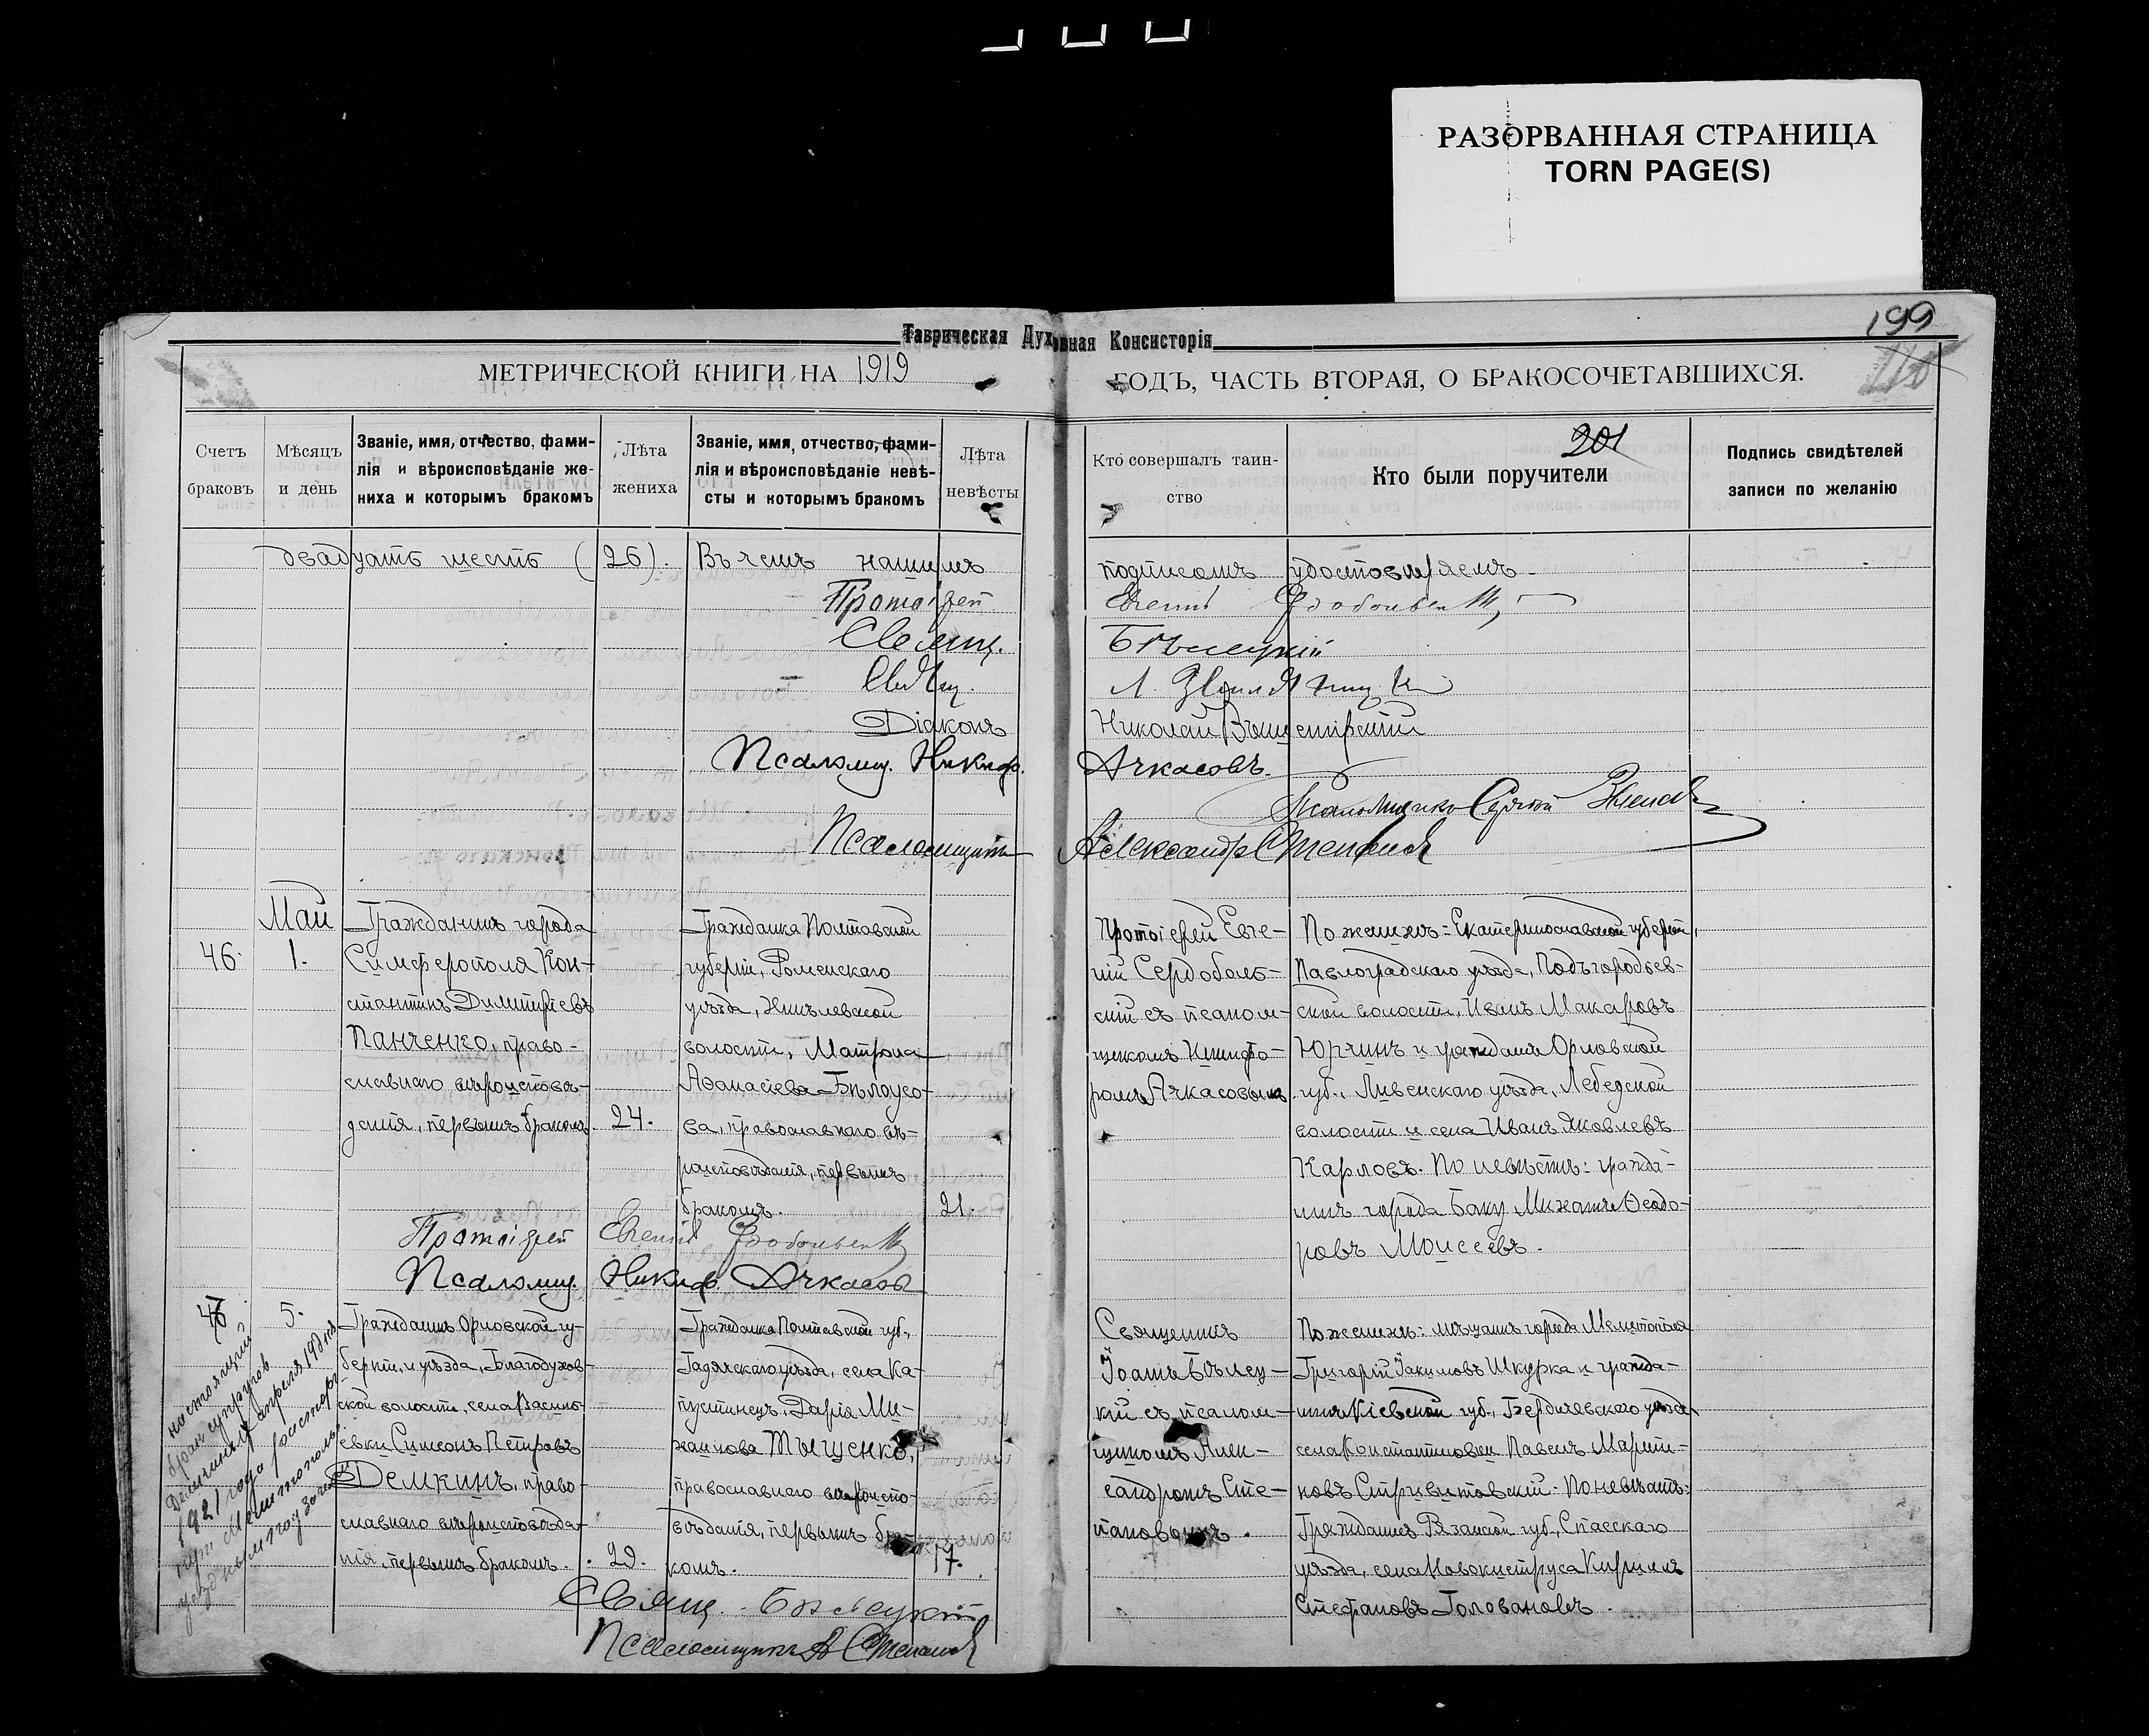 РАЗОРВАННАЯ СТРАНИЦА
TORN PAGE(S)
199
Таврическая Духовная Консисторія
МЕТРИЧЕСКОЙ КНИГИ НА 1919 ГОДЪ, ЧАСТЬ ВТОРАЯ, О БРАКОСОЧЕТАВШИХСЯ.
Счетъ
браковъ
Мѣсяцъ
и день
Званіе, имя, отчество, фами-
лія и вѣроисповѣданіе же-
ниха и которымъ бракомъ
Лѣта
жениха
Званіе, имя, отчество, фами-
лія и вѣроисповѣданіе невѣ-
сты и которымъ бракомъ
Лѣта
невѣсты
Кто совершалъ таин-
ство
201
Кто были поручители
Подпись свидѣтелей
записи по желанію
двадцать шесть (26). Въ чемъ нашимъ подписомъ удостовѣряемъ
Протоіерей Евгеній
Свящ. Бѣлецкій
Свящ. Л.
Діаконъ Николай
Псаломщ. Никиф. Ачкасовъ.
Псаломщикъ Сергей
Псаломщикъ Александръ Степановъ
46.
Май
1.
Гражданинъ города
Симферополя Кон-
стантинъ Димитріевъ
Панченко, право-
славнаго вѣроисповѣ-
данія, первымъ бракомъ.
24.
Гражданка Полтавской
губерніи, Роменскаго
уѣзда,
волости, Матрона
Аѳанасіева Бѣлоусо-
ва, православнаго вѣ-
роисповѣданія, первымъ
бракомъ.
21.
Протоіерей Евге-
ній Сердоболь-
скій съ псалом-
щикомъ Никифо-
ромъ Ачкасовымъ.
По женихѣ: Екатеринославской губерніи,
Павлоградскаго уѣзда, Подъгородьев-
ской волости, Иванъ Макаровъ
Юрчинъ и гражданинъ Орловской
губ., Ливенскаго уѣзда, Лебедской
волости и села Иванъ Яковлевъ
Карловъ. По невѣстѣ: гражда-
нинъ города Баку Михаилъ Ѳеодо-
ровъ Моисеевъ.
Протоіерей Евгеній
Псаломщ. Никиф. Ачкасовъ
5.
Гражданинъ Орловской гу-
берніи, и уѣзда, Благодухов-
ской волости, села Василь-
евки Симеонъ Петровъ
Демкинъ, право-
славнаго вѣроисповѣда-
нія, первымъ бракомъ.
Гражданка Полтавской губ.,
Гадячскаго уѣзда, села Ка-
пустинецъ, Дарія Ми-
хайлова Тыщенко,
православнаго вѣроиспо-
вѣданія, первымъ бра-
комъ.
17.
Священникъ
Іоаннъ Бѣлец-
кій съ псалом-
щикомъ Алек-
сандромъ Сте-
пановымъ.
По женихѣ: мѣщанинъ города Мелитополя
Григорій Іакимовъ Шкурка и гражда-
нинъ Кіевской губ., Бердичевскаго уѣзда
села Константиновки Павелъ Марти-
новъ По невѣстѣ:
Гражданинъ Рязанской губ., Спасскаго
уѣзда, села Новокиструса Кириллъ
Стефановъ Головановъ.
настоящий
брак супругов
Демкиных апреля 19 дня
1921 года расторг-
нут Мелитополь-
Свящ. Бѣлецкій
Псаломщикъ А Степановъ